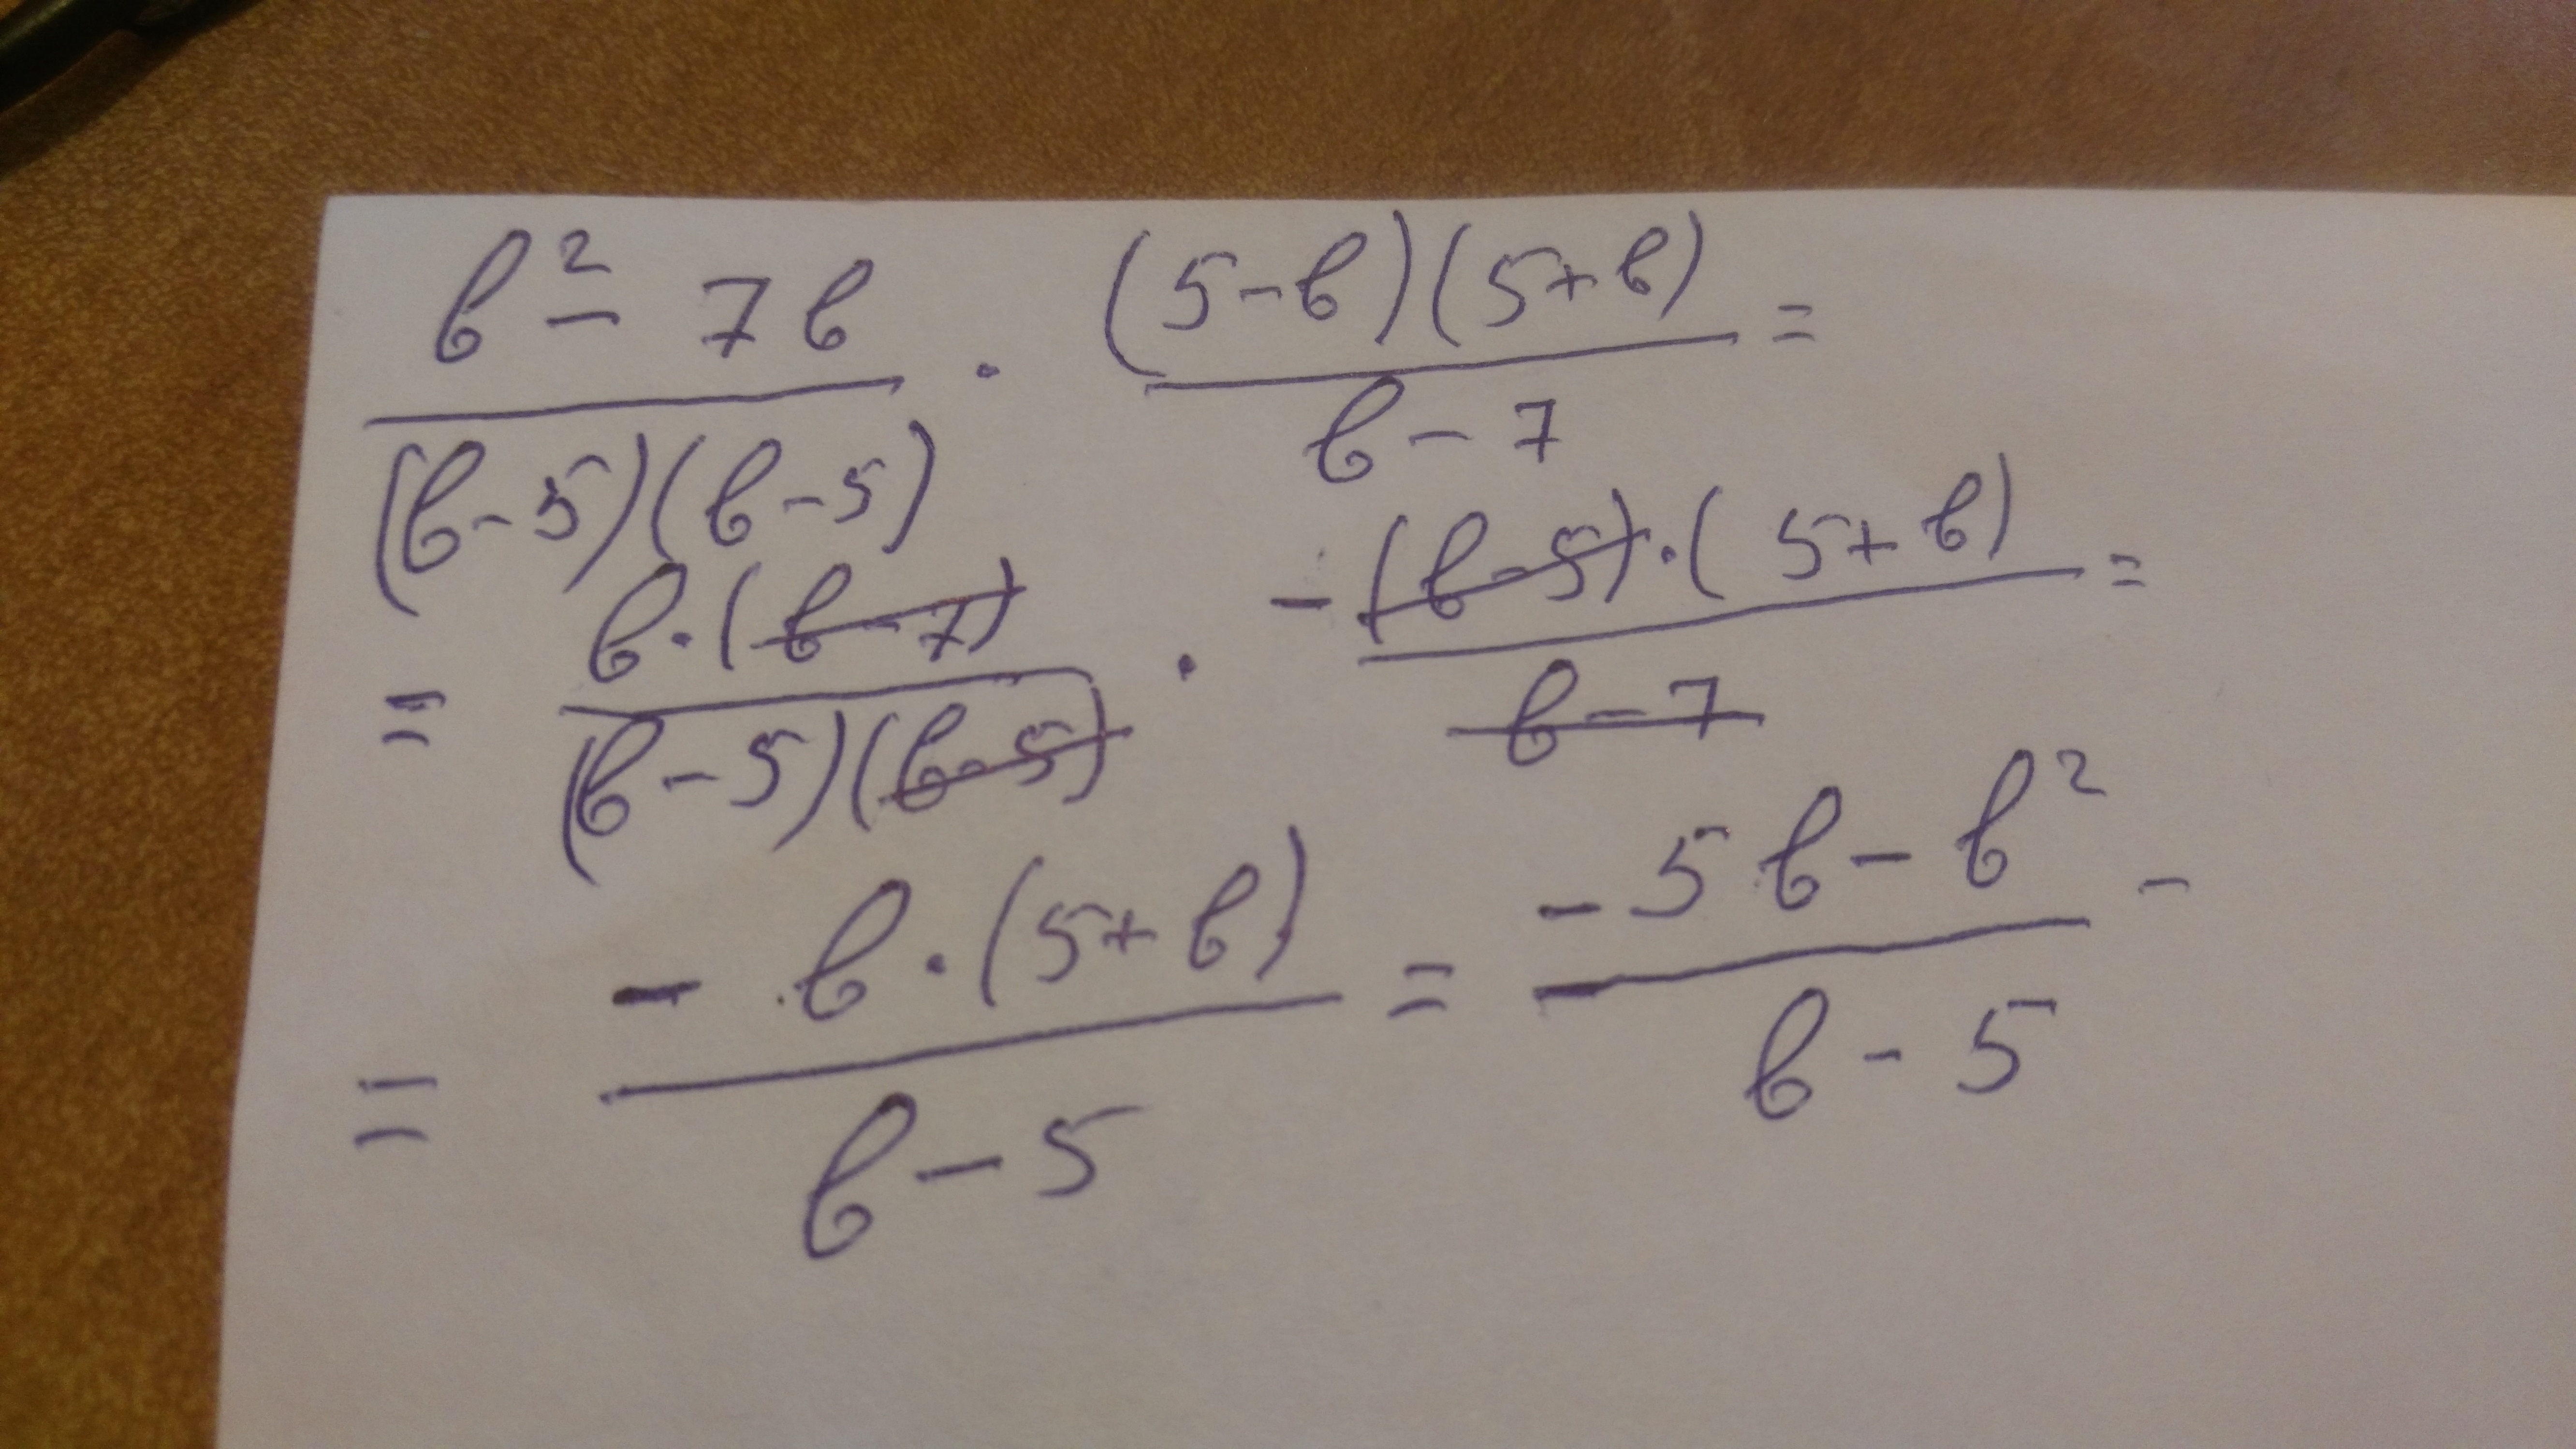 b² - 7b / (b-5)(b-5) · (5-b)(5+b) / b-7 =
= b·(b-7) / (b-5)(b-5) · -(b-5)·(5+b) / b-7 =
= - b·(5+b) / b-5 = -5b-b² / b-5 -